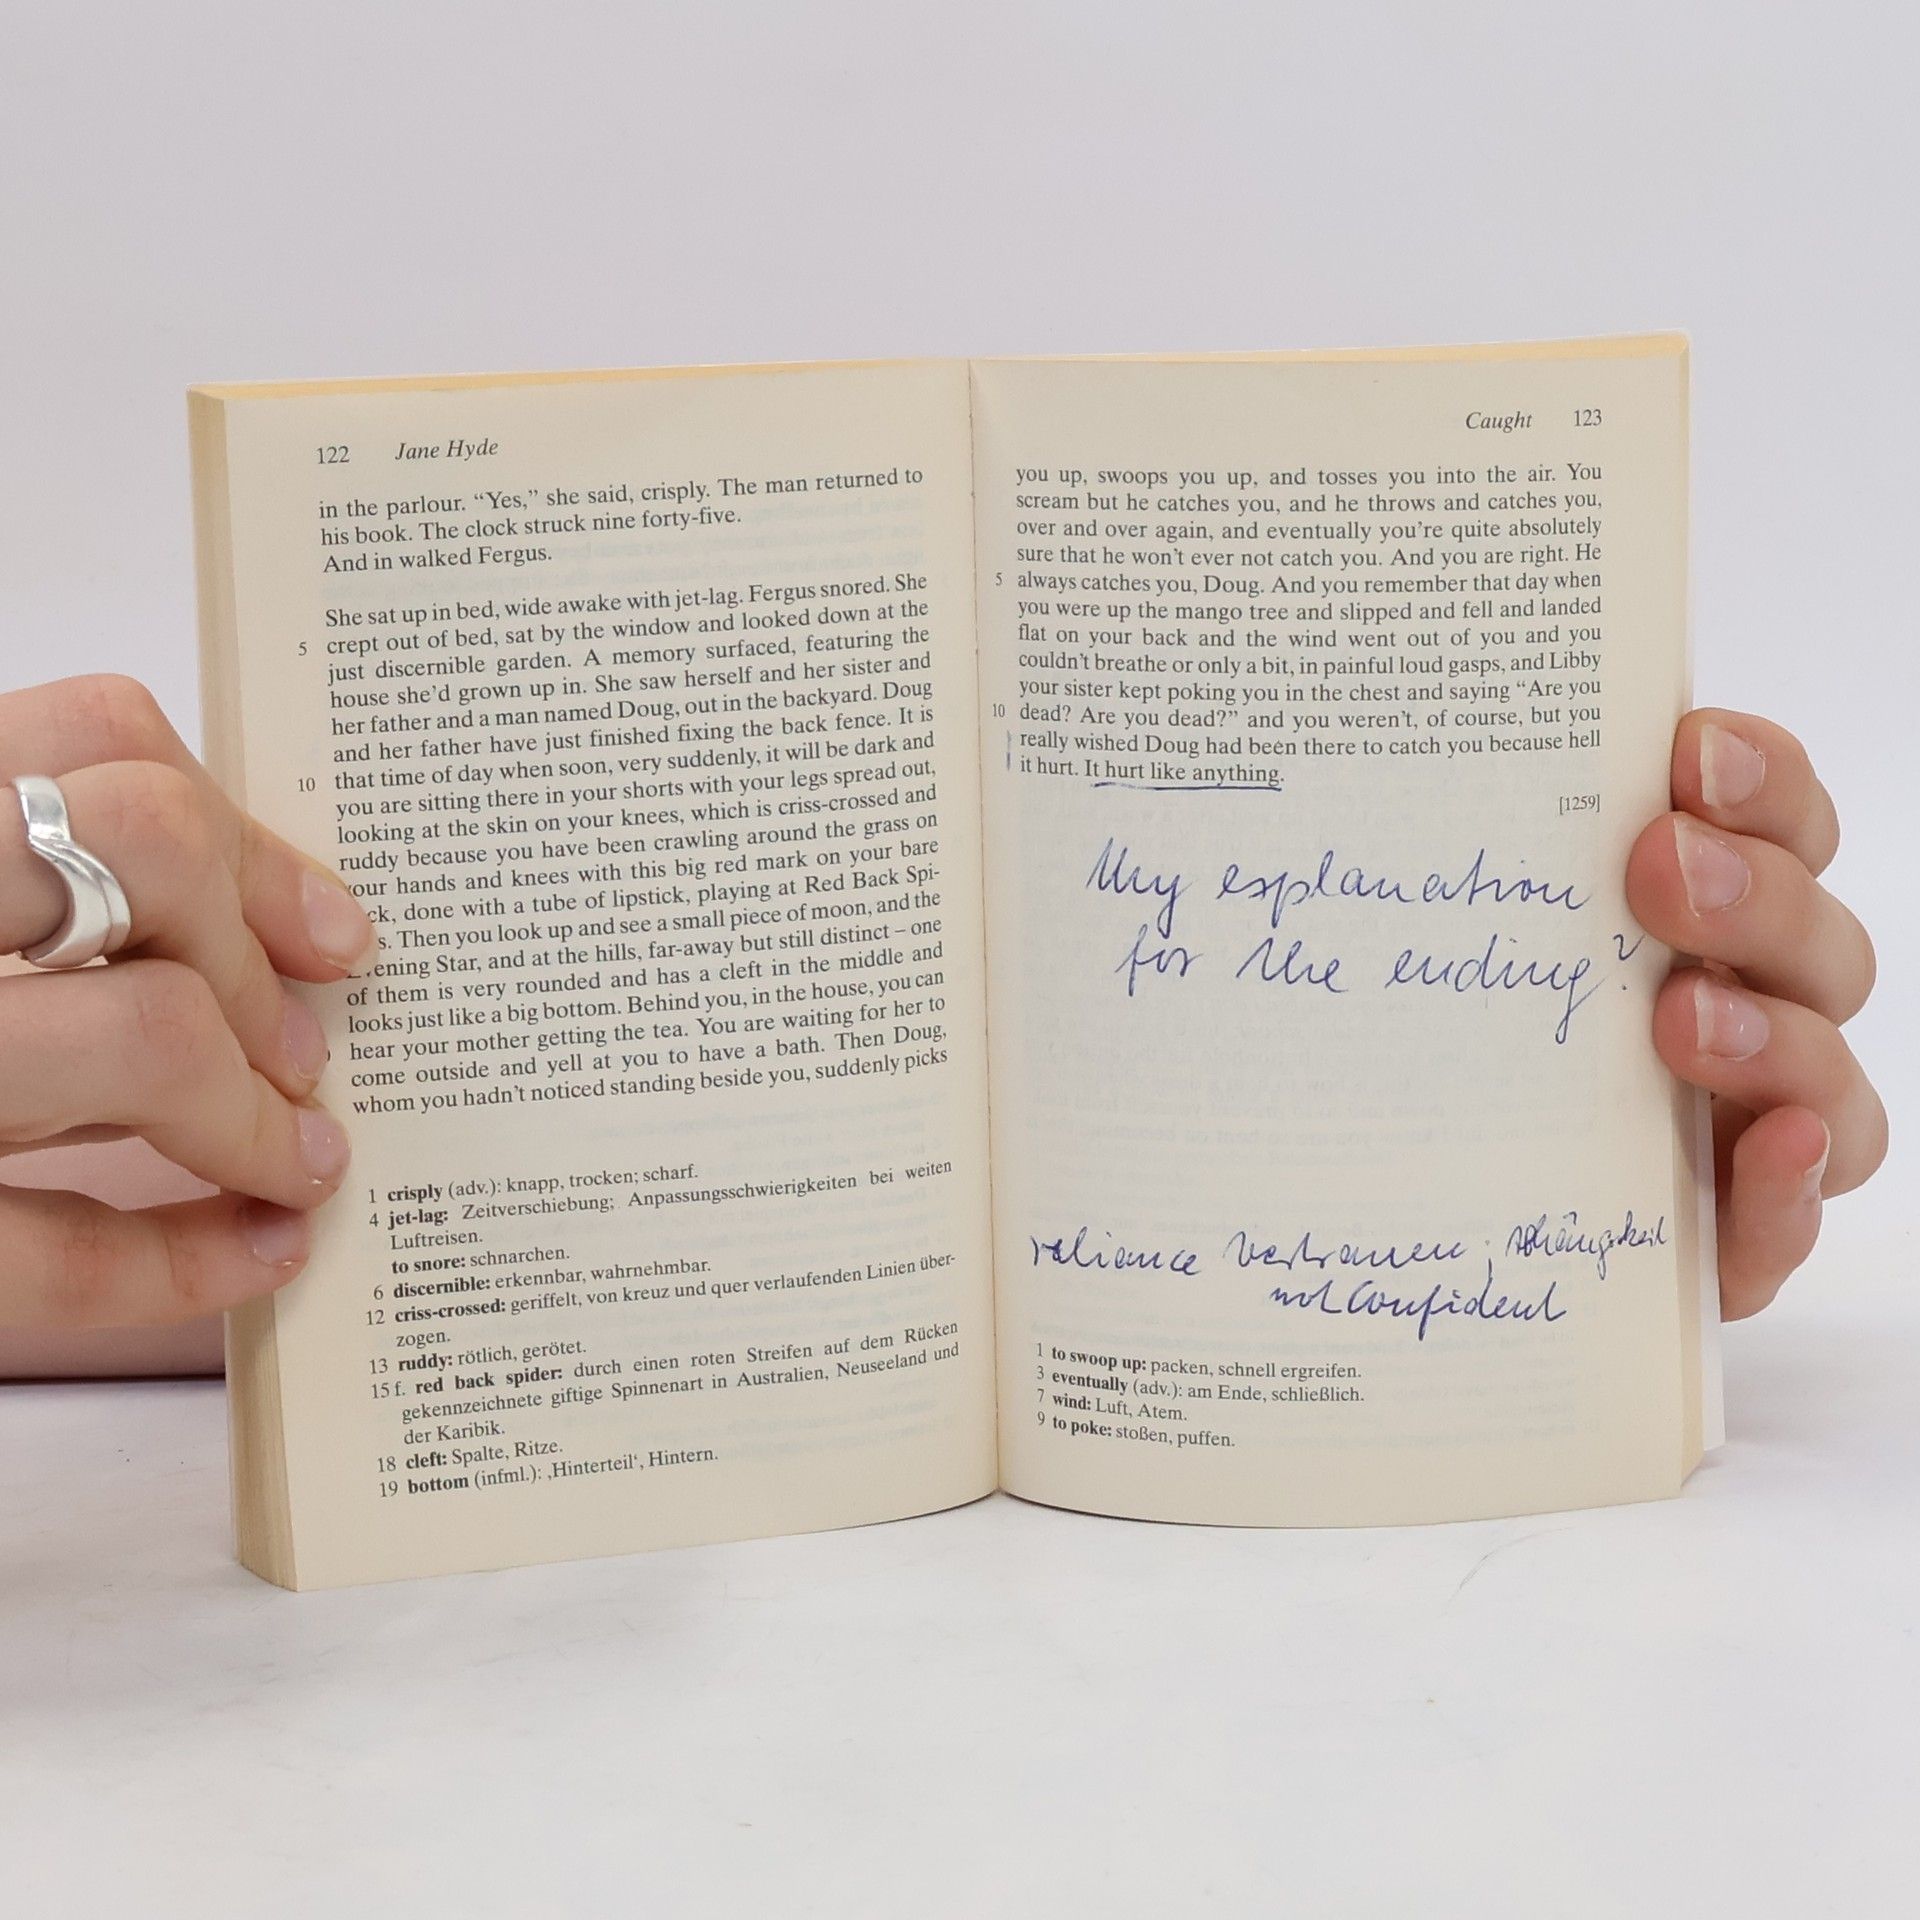 122 Jane Hyde
in the parlour. “Yes,” she said, crisply. The man returned to
his book. The clock struck nine forty-five.
And in walked Fergus.
She sat up in bed, wide awake with jet-lag. Fergus snored. She
5 crept out of bed, sat by the window and looked down at the
just discernible garden. A memory surfaced, featuring the
house she’d grown up in. She saw herself and her sister and
her father and a man named Doug, out in the backyard. Doug
and her father have just finished fixing the back fence. It is
10 that time of day when soon, very suddenly, it will be dark and
you are sitting there in your shorts with your legs spread out,
looking at the skin on your knees, which is criss-crossed and
ruddy because you have been crawling around the grass on
your hands and knees with this big red mark on your bare
ck, done with a tube of lipstick, playing at Red Back Spi-
s. Then you look up and see a small piece of moon, and the
ening Star, and at the hills, far-away but still distinct – one
of them is very rounded and has a cleft in the middle and
looks just like a big bottom. Behind you, in the house, you can
hear your mother getting the tea. You are waiting for her to
come outside and yell at you to have a bath. Then Doug,
whom you hadn’t noticed standing beside you, suddenly picks
1 crisply (adv.): knapp, trocken; scharf.
4 jet-lag: Zeitverschiebung; Anpassungsschwierigkeiten bei weiten
Luftreisen.
to snore: schnarchen.
6 discernible: erkennbar, wahrnehmbar.
12 criss-crossed: geriffelt, von kreuz und quer verlaufenden Linien über-
zogen.
13 ruddy: rötlich, gerötet.
15 f. red back spider: durch einen roten Streifen auf dem Rücken
gekennzeichnete giftige Spinnenart in Australien, Neuseeland und
der Karibik.
18 cleft: Spalte, Ritze.
19 bottom (infml.): ‚Hinterteil‘, Hintern.
Caught 123
you up, swoops you up, and tosses you into the air. You
scream but he catches you, and he throws and catches you,
over and over again, and eventually you’re quite absolutely
sure that he won’t ever not catch you. And you are right. He
5 always catches you, Doug. And you remember that day when
you were up the mango tree and slipped and fell and landed
flat on your back and the wind went out of you and you
couldn’t breathe or only a bit, in painful loud gasps, and Libby
your sister kept poking you in the chest and saying “Are you
10 dead? Are you dead?” and you weren’t, of course, but you
really wished Doug had been there to catch you because hell
it hurt. It hurt like anything.
[1259]
My explanation
for the ending?
reliance Vertrauen; Abhängigkeit
not Confident
1 to swoop up: packen, schnell ergreifen.
3 eventually (adv.): am Ende, schließlich.
7 wind: Luft, Atem.
9 to poke: stoßen, puffen.